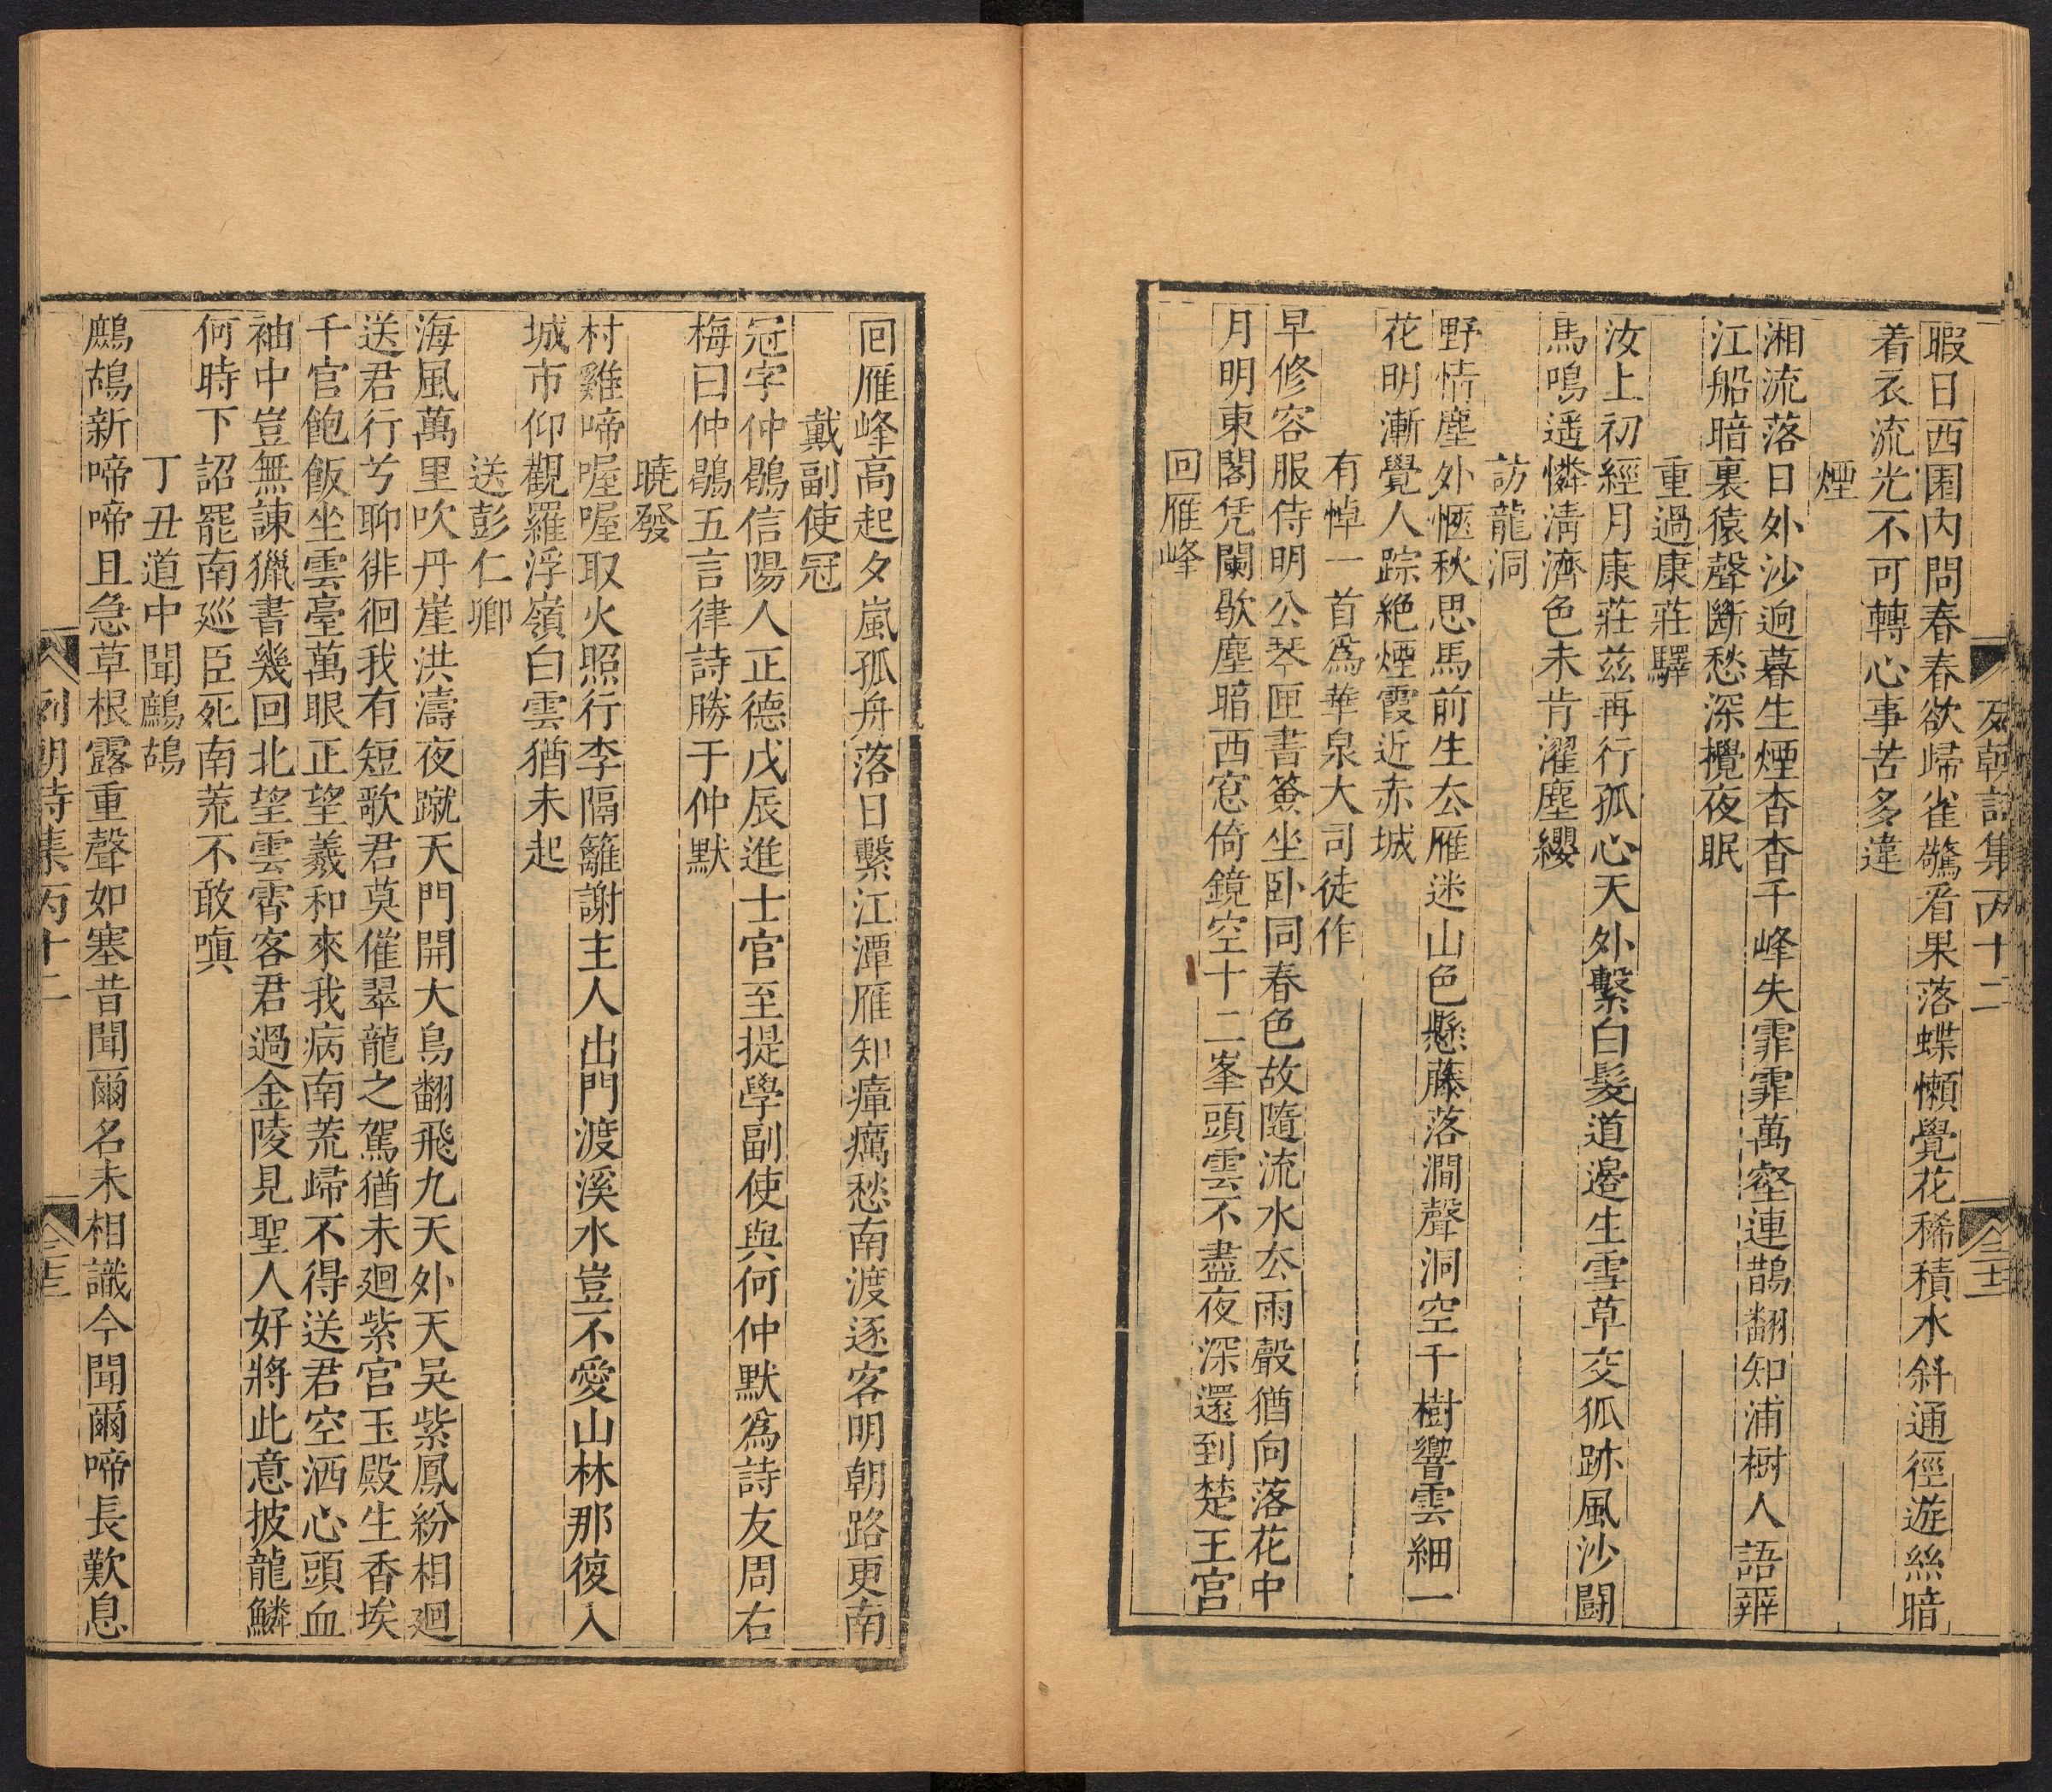 暇日西園內問春春欲歸雀驚看果落蝶懶覺花稀積水斜通徑遊絲暗
着衣流光不可轉心事苦多違
煙
湘流落日外沙逈暮生煙杳杳千峰失霏霏萬壑連鵲翻知浦樹人語辨
江船暗裏猿聲斷愁深攪夜眠
重過康莊驛
汝上初經月康莊茲再行孤心天外繫白髮道邉生雪草交狐跡風沙鬪
馬鳴遥憐淸濟色未肯濯塵纓
訪龍洞
野情塵外愜秋思馬前生厺雁迷山色懸藤落澗聲洞空千樹響雲細一
花明漸覺人踪絶煙霞近赤城
有悼一首爲華泉大司徒作
早修容服侍明公琴匣書籢坐卧同春色故隨流水厺雨聲猶向落花中
月明東閣凭闌歇塵暗西窓倚鏡空十二峯頭雲不盡夜深還到楚王宮
回雁峰
列朝詩集丙十二
回雁峰高起夕嵐孤舟落日繫江潭雁知瘴癘愁南渡逐客明朝路更南
戴副使冠
冠字仲鶡信陽人正德戊辰進士官至提學副使與何仲默爲詩友周右
梅曰仲鶡五言律詩勝于仲默
曉發
村雞啼喔喔取火照行李隔籬謝主人出門渡溪水豈不愛山林那復入
城市仰觀羅浮嶺白雲猶未起
送彭仁卿
海風萬里吹丹崖洪濤夜蹴天門開大鳥翻飛九天外天吳紫鳳紛相廻
送君行兮聊徘徊我有短歌君莫催翠龍之駕猶未廻紫宮玉殿生香埃
千官飽飯坐雲臺萬眼正望羲和來我病南荒歸不得送君空洒心頭血
袖中豈無諫獵書幾回北望雲霄客君過金陵見聖人好將此意披龍鱗
何時下詔罷南廵臣死南荒不敢嗔
丁丑道中聞鷓鴣
鷓鴣新啼啼且急草根露重聲如塞昔聞爾名未相識今聞爾啼長歎息
列朝詩集丙十二